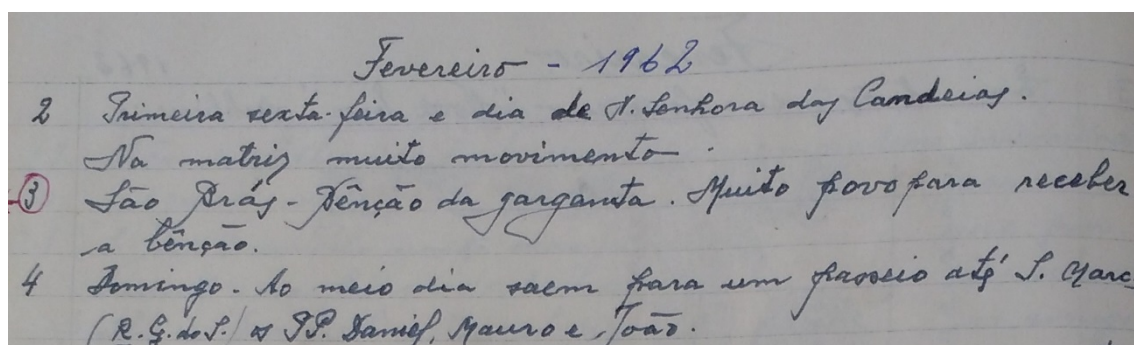 Fevereiro - 1962
2 Primeira sexta-feira e dia de N. Senhora das Candeias.
Na matriz muito movimento.
3 São Brás - Bênção da garganta. Muito povo para receber
a bênção.
4 Domingo. Ao meio dia saem para um passeio até S. Marc
(R. G. do S.) os PP. Daniel, Mauro e João.